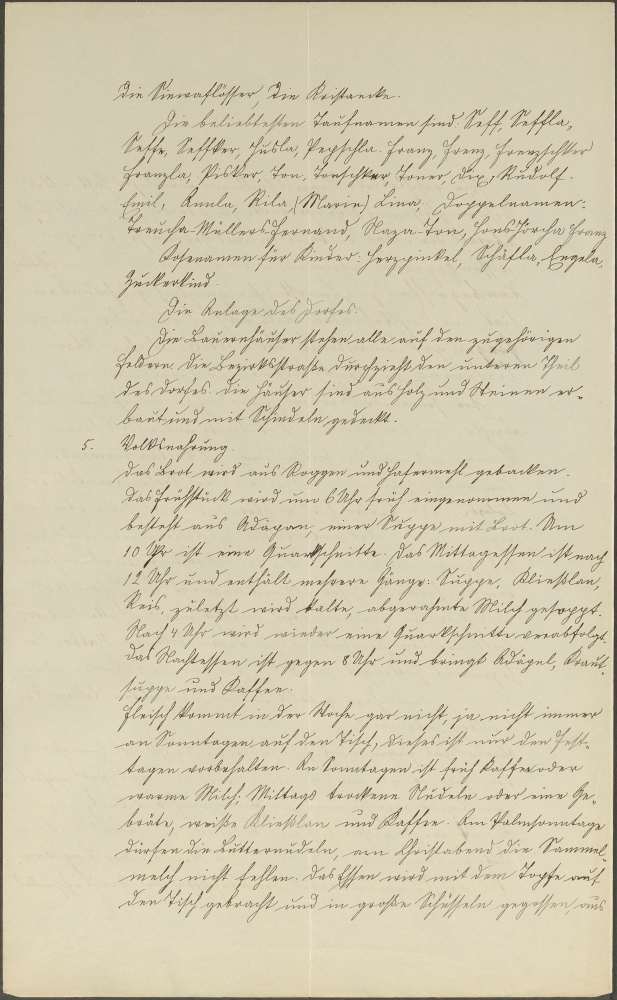 die Binnaflösser, die Kristaecke.
Die beliebtesten Taufnamen sind: Seff, Seffla,
Seffe, Seffker, Husla, Pepschla. Franz, Frenz, Frenzschker
Franzla, Pisker, Ton, Tonschker, Toner, Dix, Rudolf.
Emil, Annla, Rila (Marie) Lina, Doppelnamen:
Treucha-Müllers Fernand, Naza-Ton, Hons Jörcha Franz
Kosenamen für Kinder: Herzpinkel, Schäfla, Engela,
Zuckerkind.
Die Anlage des Dorfes.
Die Bauernhäuser stehen alle auf den zugehörigen
Feldern. Die Bezirksstraße durchzieht den unteren Theil
des Dorfes. Die Häuser sind aus Holz und Steinen er-
baut und mit Schindeln gedeckt.
5. Volksnahrung.
Das Brot wird aus Roggen und Hafermehl gebacken.
Das Frühstück wird um 6 Uhr früh eingenommen und
besteht aus Adäpan, einer Suppe mit Brot. Um
10 Uhr ist eine Quarkschnitte. Das Mittagessen ist nach
12 Uhr und enthält mehrere Gänge: Suppe, Kließlan,
Reis, zuletzt wird kalte, abgerahmte Milch gesoppt.
Nach 4 Uhr wird wieder eine Quarkschnitte verabfolgt.
Das Nachtessen ist gegen 8 Uhr und bringt Adäpel, Kraut-
suppe und Kaffee.
Fleisch kommt in der Woche gar nicht, ja nicht immer
an Sonntagen auf den Tisch, dieses ist nur den Fest-
tagen vorbehalten. An Sonntagen ist früh Kaffee oder
warme Milch; Mittags trockene Nudeln oder eine Ge-
bräte, weiße Kließlan und Kaffee. Am Palmsonntage
dürfen die Butternudeln, am Christabend die Sammel-
melch nicht fehlen. Das Essen wird mit dem Topfe auf
den Tisch gebracht und in große Schüsseln gegossen, aus